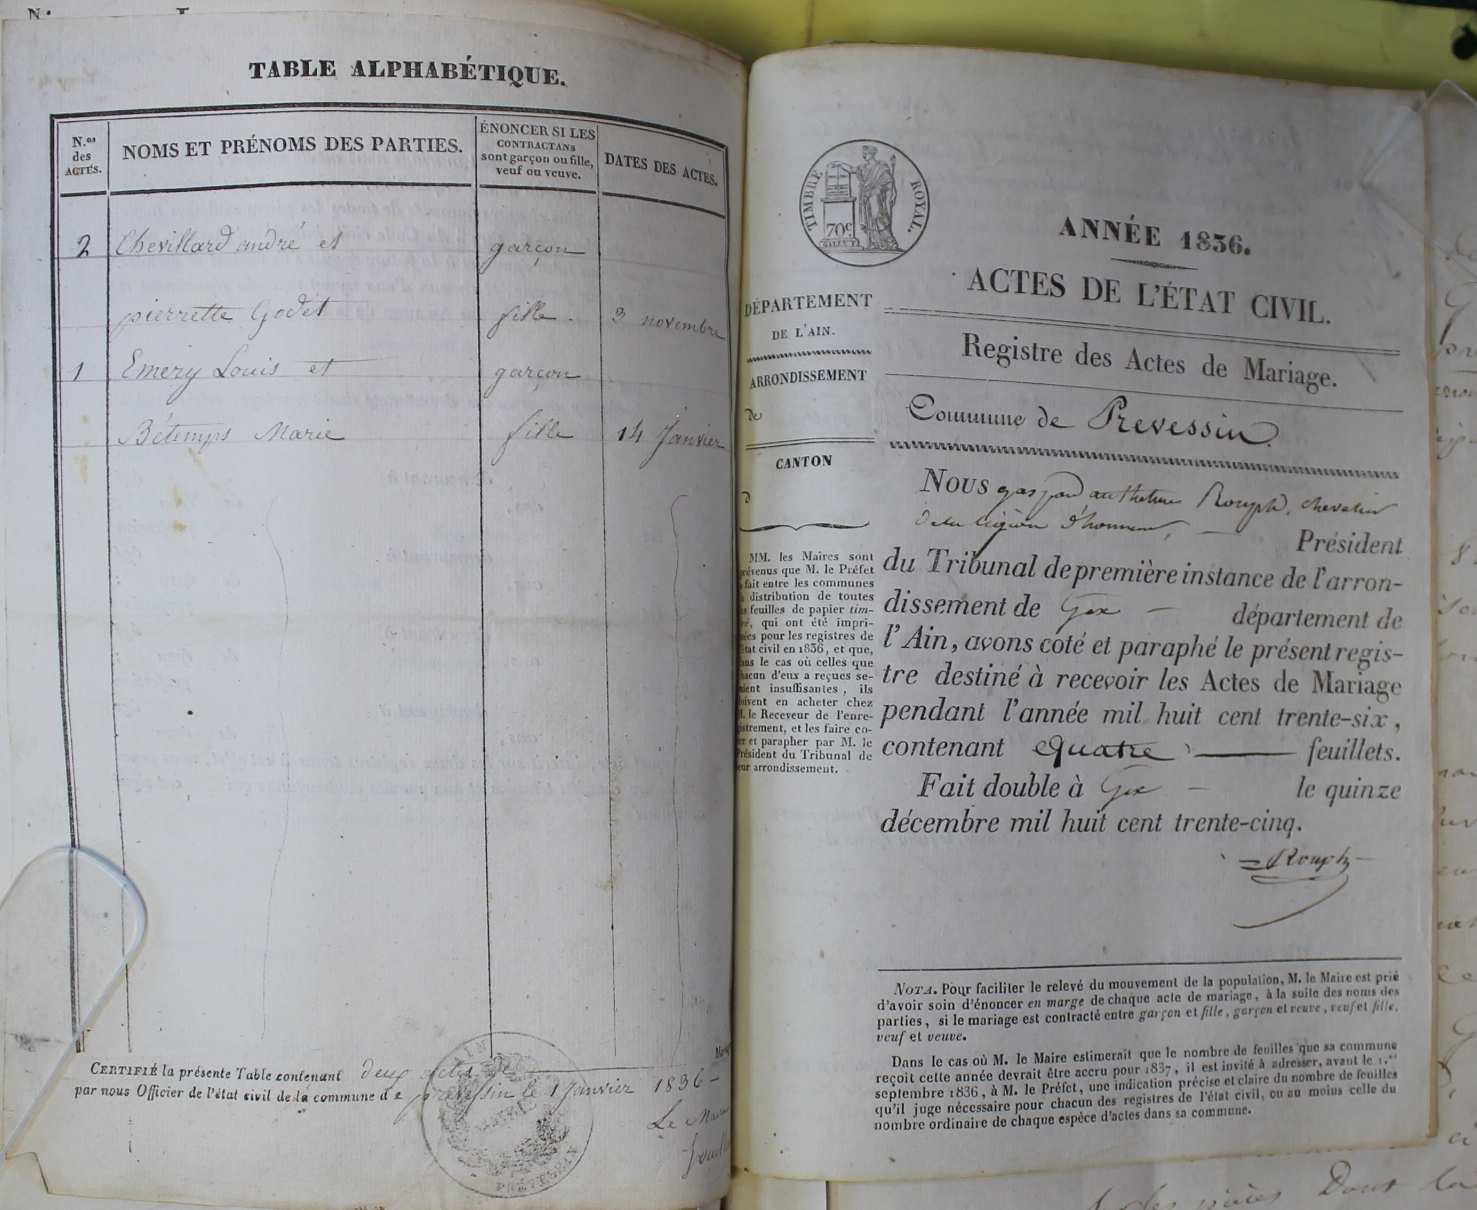 TABLE ALPHABÉTIQUE.
N.os des ACTES.
NOMS ET PRÉNOMS DES PARTIES.
ÉNONCER SI LES
CONTRACTANS
sont garçon ou fille,
veuf ou veuve.
DATES DES ACTES.
2 Chevillard andré et garçon
pierrette Godet fille . 3 novembre
1 Emery Louis et garçon
Bétemps Marie fille 14 Janvier
CERTIFIÉ la présente Table contenant deux actes
par nous Officier de l'état civil de la commune de prevessin le 1 Janvier 1836 -
Le Maire
AIN
MAIRIE
PRÉVESSIN
TIMBRE ROYAL.
70c
ANNÉE 1836.
ACTES DE L'ÉTAT CIVIL.
Registre des Actes de Mariage.
Commune de Prevessin.
DÉPARTEMENT
DE L'AIN.
ARRONDISSEMENT
de
CANTON
d
MM. les Maires sont
prévenus que M. le Préfet
a fait entre les communes
la distribution de toutes
les feuilles de papier tim-
bré, qui ont été impri-
mées pour les registres de
l'état civil en 1836, et que,
dans le cas où celles que
chacun d'eux a reçues se-
raient insuffisantes, ils
doivent en acheter chez
M. le Receveur de l'enre-
gistrement, et les faire co-
ter et parapher par M. le
Président du Tribunal de
leur arrondissement.
NOUS gaspard anthelme Rouph, chevalier
de la légion d'honneur, — Président
du Tribunal de première instance de l'arron-
dissement de Gex — département de
l'Ain, avons coté et paraphé le présent regis-
tre destiné à recevoir les Actes de Mariage
pendant l'année mil huit cent trente-six,
contenant Quatre — feuillets.
Fait double à Gex — le quinze
décembre mil huit cent trente-cinq.
Rouph
NOTA. Pour faciliter le relevé du mouvement de la population, M. le Maire est prié
d'avoir soin d'énoncer en marge de chaque acte de mariage, à la suite des noms des
parties, si le mariage est contracté entre garçon et fille, garçon et veuve, veuf et fille,
veuf et veuve.
Dans le cas où M. le Maire estimerait que le nombre de feuilles que sa commune
reçoit cette année devrait être accru pour 1837, il est invité à adresser, avant le 1.er
septembre 1836, à M. le Préfet, une indication précise et claire du nombre de feuilles
qu'il juge nécessaire pour chacun des registres de l'état civil, ou au moins celle du
nombre ordinaire de chaque espèce d'actes dans sa commune.